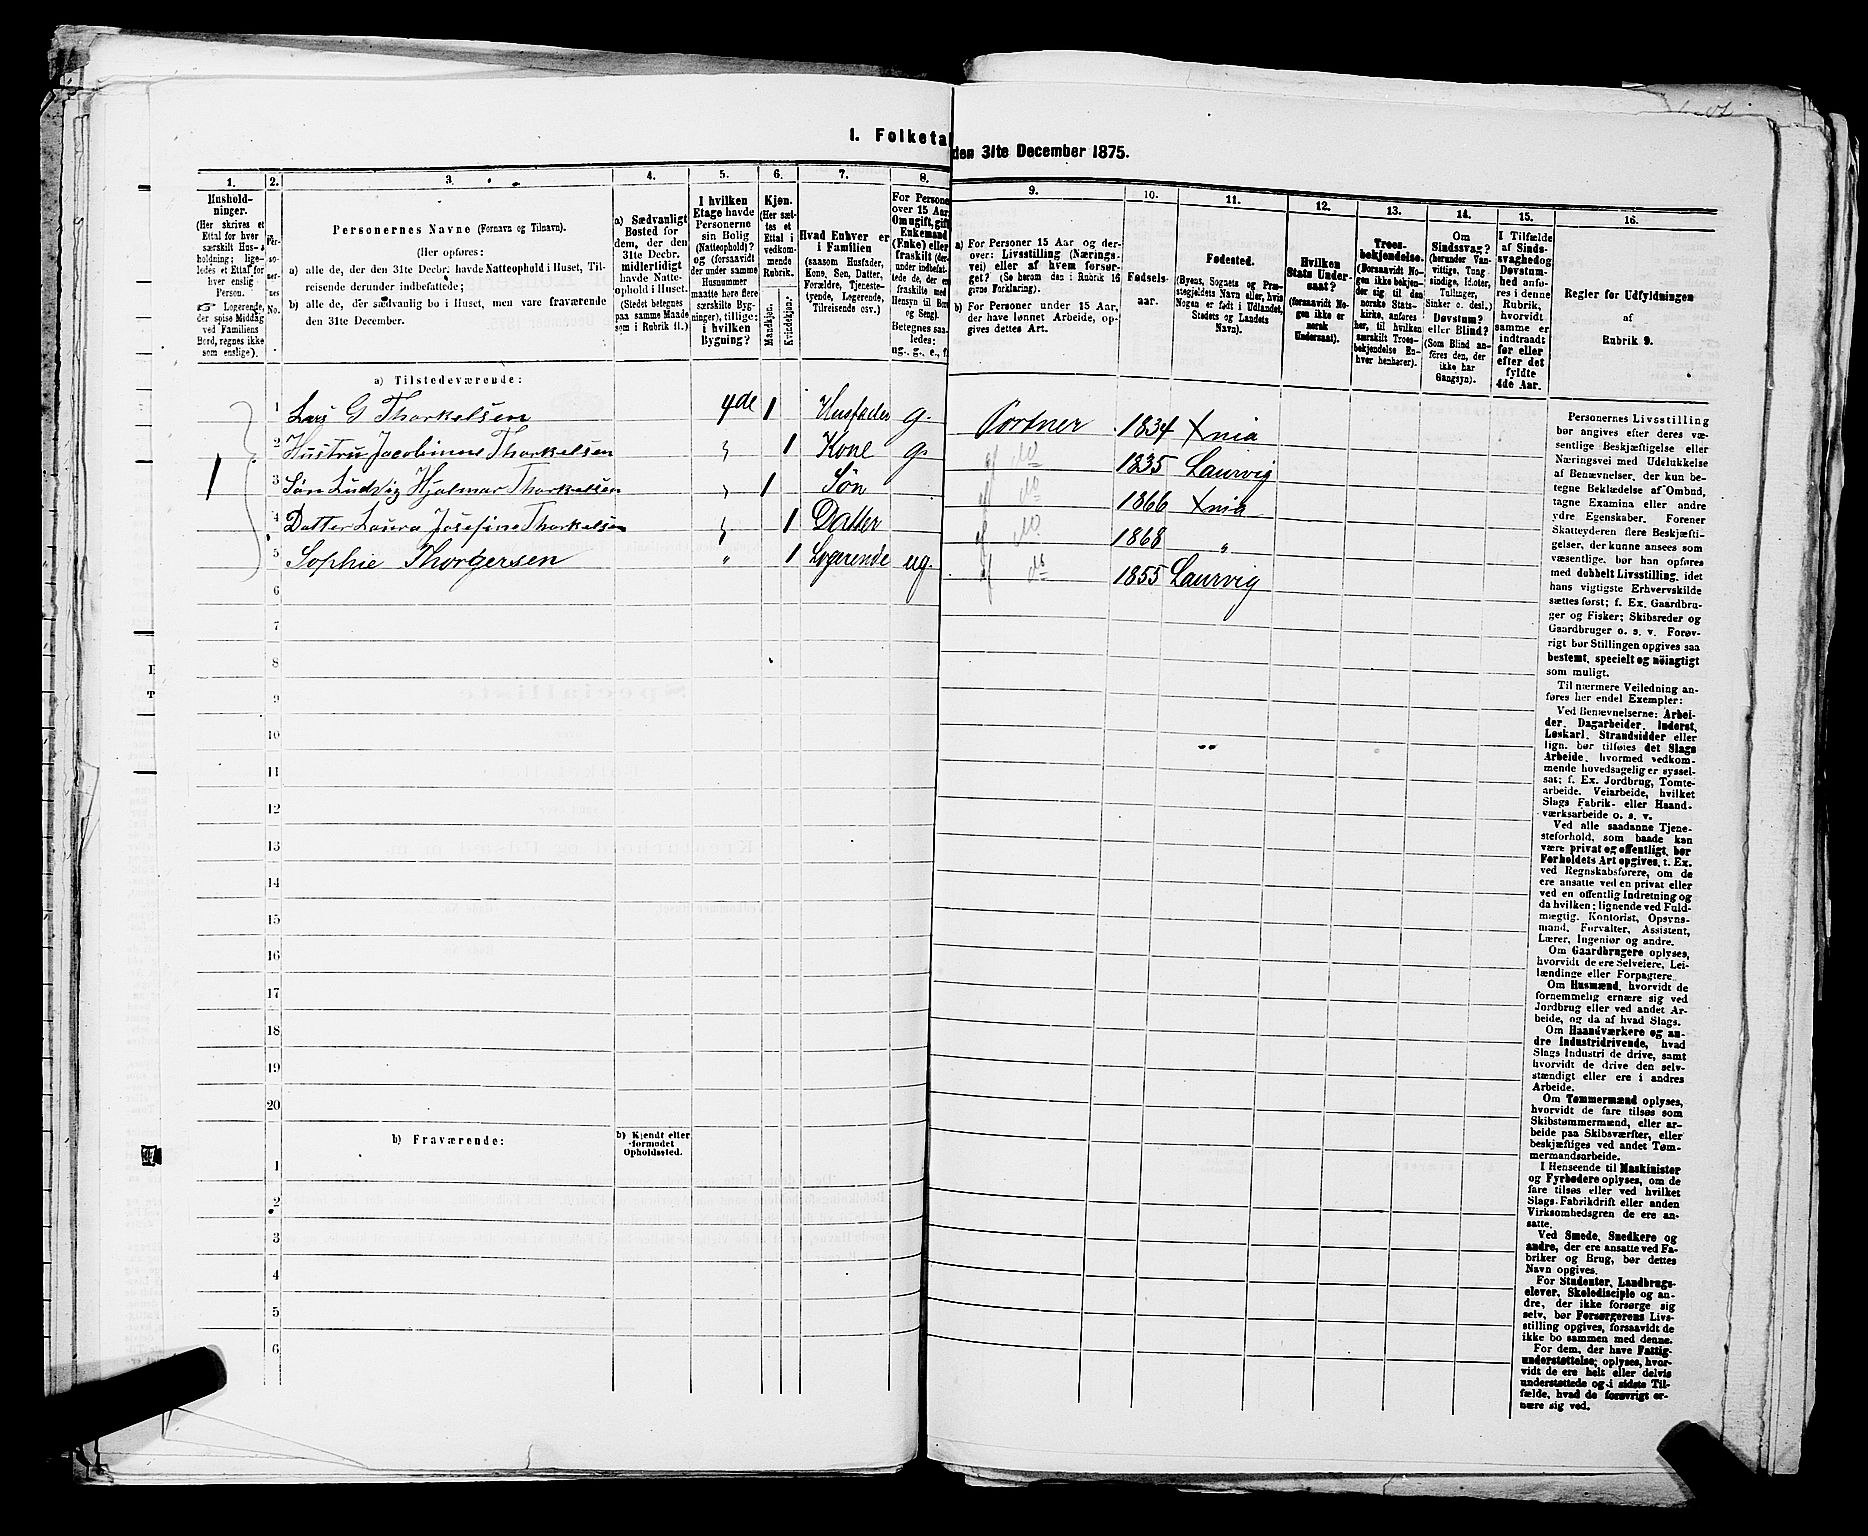 I. Folketal
den 31te December 1875.
1. 2. 3. 4. 5. 6. 7. 8. 9. 10. 11. 12. 13. 14. 15. 16.
Hushold-
ninger.
(Her skrives et
Ettal for hver
særskilt Hus-
holdning; lige-
ledes et Ettal for
hver enslig
Person.
Logerende,
der spise Middag
ved Familiens
Bord, regnes ikke
som enslige).
Per-
so-
ner-
nes
No.
Personernes Navne (Fornavn og Tilnavn).
(Her opføres:
a) alle de, der den 31te Decbr. havde Natteophold i Huset, Til-
reisende derunder indbefattede;
b) alle de, der sædvanlig bo i Huset, men vare fraværende
den 31te December.
a) Sædvanligt
Bosted for
dem, der den
31te Decbr.
midlertidigt
havde Natte-
ophold i Huset.
(Stedet betegnes
paa samme Maade
som i Rubrik 11.)
I hvilken
Etage havde
Personerne
sin Bolig
(Natteophold)?
og (forsaavidt
der under samme
Husnummer
maatte høre flere
særskilte Byg-
ninger), tillige:
i hvilken
Bygning?
Kjøn.
(Her sæt-
tes et
Ettal i
vedkom-
mende
Rubrik.
Mandkjøn.
Kvindekjøn.
Hvad Enhver er
i Familien
(saasom Husfader,
Kone, Søn, Datter,
Forældre, Tjeneste-
tyende, Logerende,
Tilreisende osv.)
For Persone
over 15 Aar
Om ugift, gift
Enkemand
(Enke) eller
fraskilt (der-
under indbefat-
tede de, der er
fraskilte med
Hensyn til Bord
og Seng).
Betegnes saa-
ledes:
ug., g., e., f.
a) For Personer 15 Aar og der-
over: Livsstilling (Nærings-
vei) eller af hvem forsør-
get? (Se herom den i Rubrik 16
givne Forklaring).
b) For Personer under 15 Aar,
der have lønnet Arbeide, op-
gives dettes Art.
Fødsels-
aar.
Fødested.
(Byens, Sognets og Præ-
stegjeldets Navn eller, hvis
Nogen er født i Udlandet,
Stedets og Landets
Navn).
Hvilken
Stats Under-
saat?
(forsaavidt No-
gen ikke er
norsk
Undersaat).
Troes-
bekjendelse.
(Forsaavidt No-
gen ikke bekjen-
der sig til den
norske Stats-
kirke, anføres
her, til hvilken
særskilt Troes-
bekjendelse En-
hver henhører).
Om
Sindssvag?
(herunder Van-
vittige, Tung-
sindige, Idioter,
Tullinger,
Sinker o. desl.)
Døvstum?
eller Blind?
(Som Blind an-
føres den, der
ikke har
Gangsyn).
I Tilfælde
af Sinds-
svaghed og
Døvstum-
hed anfø-
res i denne
Rubrik,
hvorvidt
samme er
indtraadt
før eller
efter det
fyldte
4de Aar.
Regler for Udfyldningen
af
Rubrik 9.
a) Tilstedeværende:
1 Lars G Thorkelsen 4de 1 Husfader g. Portner 1834 Xnia
2 Hustru Jacobinne Thorkelsen " 1 Kone g. do 1835 Laurvig
1 3 Søn Ludvig Hjalmar Thorkelsen " 1 Søn do 1866 Xnia
4 Datter Laura Josefine Thorkelsen " 1 Datter do 1868 "
5 Sophie Thorgersen " 1 Logerende ug. do 1855 Laurvig
6
7
8
9
10
11
12
13
14
15
16
17
18
19
20
b) Fraværende:
b) Kjendt eller
formodet
Opholdssted.
1
2
3
4
5
6
Personernes Livsstilling
bør angives efter deres væ-
sentlige Beskjæftigelse eller
Næringsvei med Udelukkelse
af Benævnelser, der kun be-
tegne Beklædelse af Ombud,
tagne Examina eller andre
ydre Egenskaber. Forener
Skatteyderen flere Beskjæfti-
gelser, der kunne ansees som
væsentlige, bør han opføres
med dobbelt Livsstilling, idet
hans vigtigste Erhvervskilde
sættes først; f. Ex. Gaardbru-
ger og Fisker; Skibsreder og
Gaardbruger o. s. v. Forøv-
rigt bør Stillingen opgives saa
bestemt, specielt og nöiagtigt
som muligt.
Til nærmere Veiledning an-
føres her endel Exempler:
Ved Benævnelserne: Arbei-
der, Dagarbeider, Inderst,
Løskarl, Strandsidder eller
lign. bør tilføies det Slags
Arbeide, hvormed vedkom-
mende hovedsagelig er syssel-
sat; f. Ex. Jordbrug, Tomte-
arbeide, Veiarbeide, hvilket
Slags Fabrik- eller Haand-
værksarbeide o. s. v.
Ved alle saadanne Tjene-
steforhold, som baade kan
være privat og offentligt, bør
Forholdets Art opgives, t. Ex.
ved Regnskabsførere, om de
ere ansatte ved en privat eller
ved en offentlig Indretning og
da hvilken; lignende ved Fuld-
mægtig, Kontorist, Opsyns-
mand, Forvalter, Assistent,
Lærer, Ingeniør og andre.
Om Gaardbrugere oplyses,
hvorvidt de ere Selveiere, Lei-
lændinge eller Forpagtere.
Om Husmænd, hvorvidt de
fornemmelig ernære sig ved
Jordbrug eller ved andet Ar-
beide, og da af hvad Slags.
Om Haandværkere og an-
dre Industridrivende, hvad
Slags Industri de drive, samt
hvorvidt de drive den selv-
stændigt eller ere i andres
Arbeide.
Om Tømmermænd oplyses,
hvorvidt de fare tilsøs som
Skibstømmermænd, eller ar-
beide paa Skibsværfter, eller
beskjæftiges ved andet Tøm-
mermandsarbeide.
I Henseende til Maskinister
og Fyrbødere oplyses, om de
fare tilsøs eller ved hvilket
Slags Fabrikdrift eller anden
Virksomhedsgren de ere an-
satte.
Ved Smede, Snedkere og
andre, der ere ansatte ved Fa-
briker og Brug, bør dettes
Navn opgives.
For Studenter, Landbrugs-
elever, Skoledisciple og an-
dre, der ikke forsørge sig
selv, bør Forsørgerens Livs-
stilling opgives, forsaavidt de
ikke bo sammen med denne.
For dem, der have Fattig-
understøttelse, oplyses, hvor-
vidt de ere helt eller delvis
understøttede og i sidste Til-
fælde, hvad de forøvrigt er-
nære sig ved.